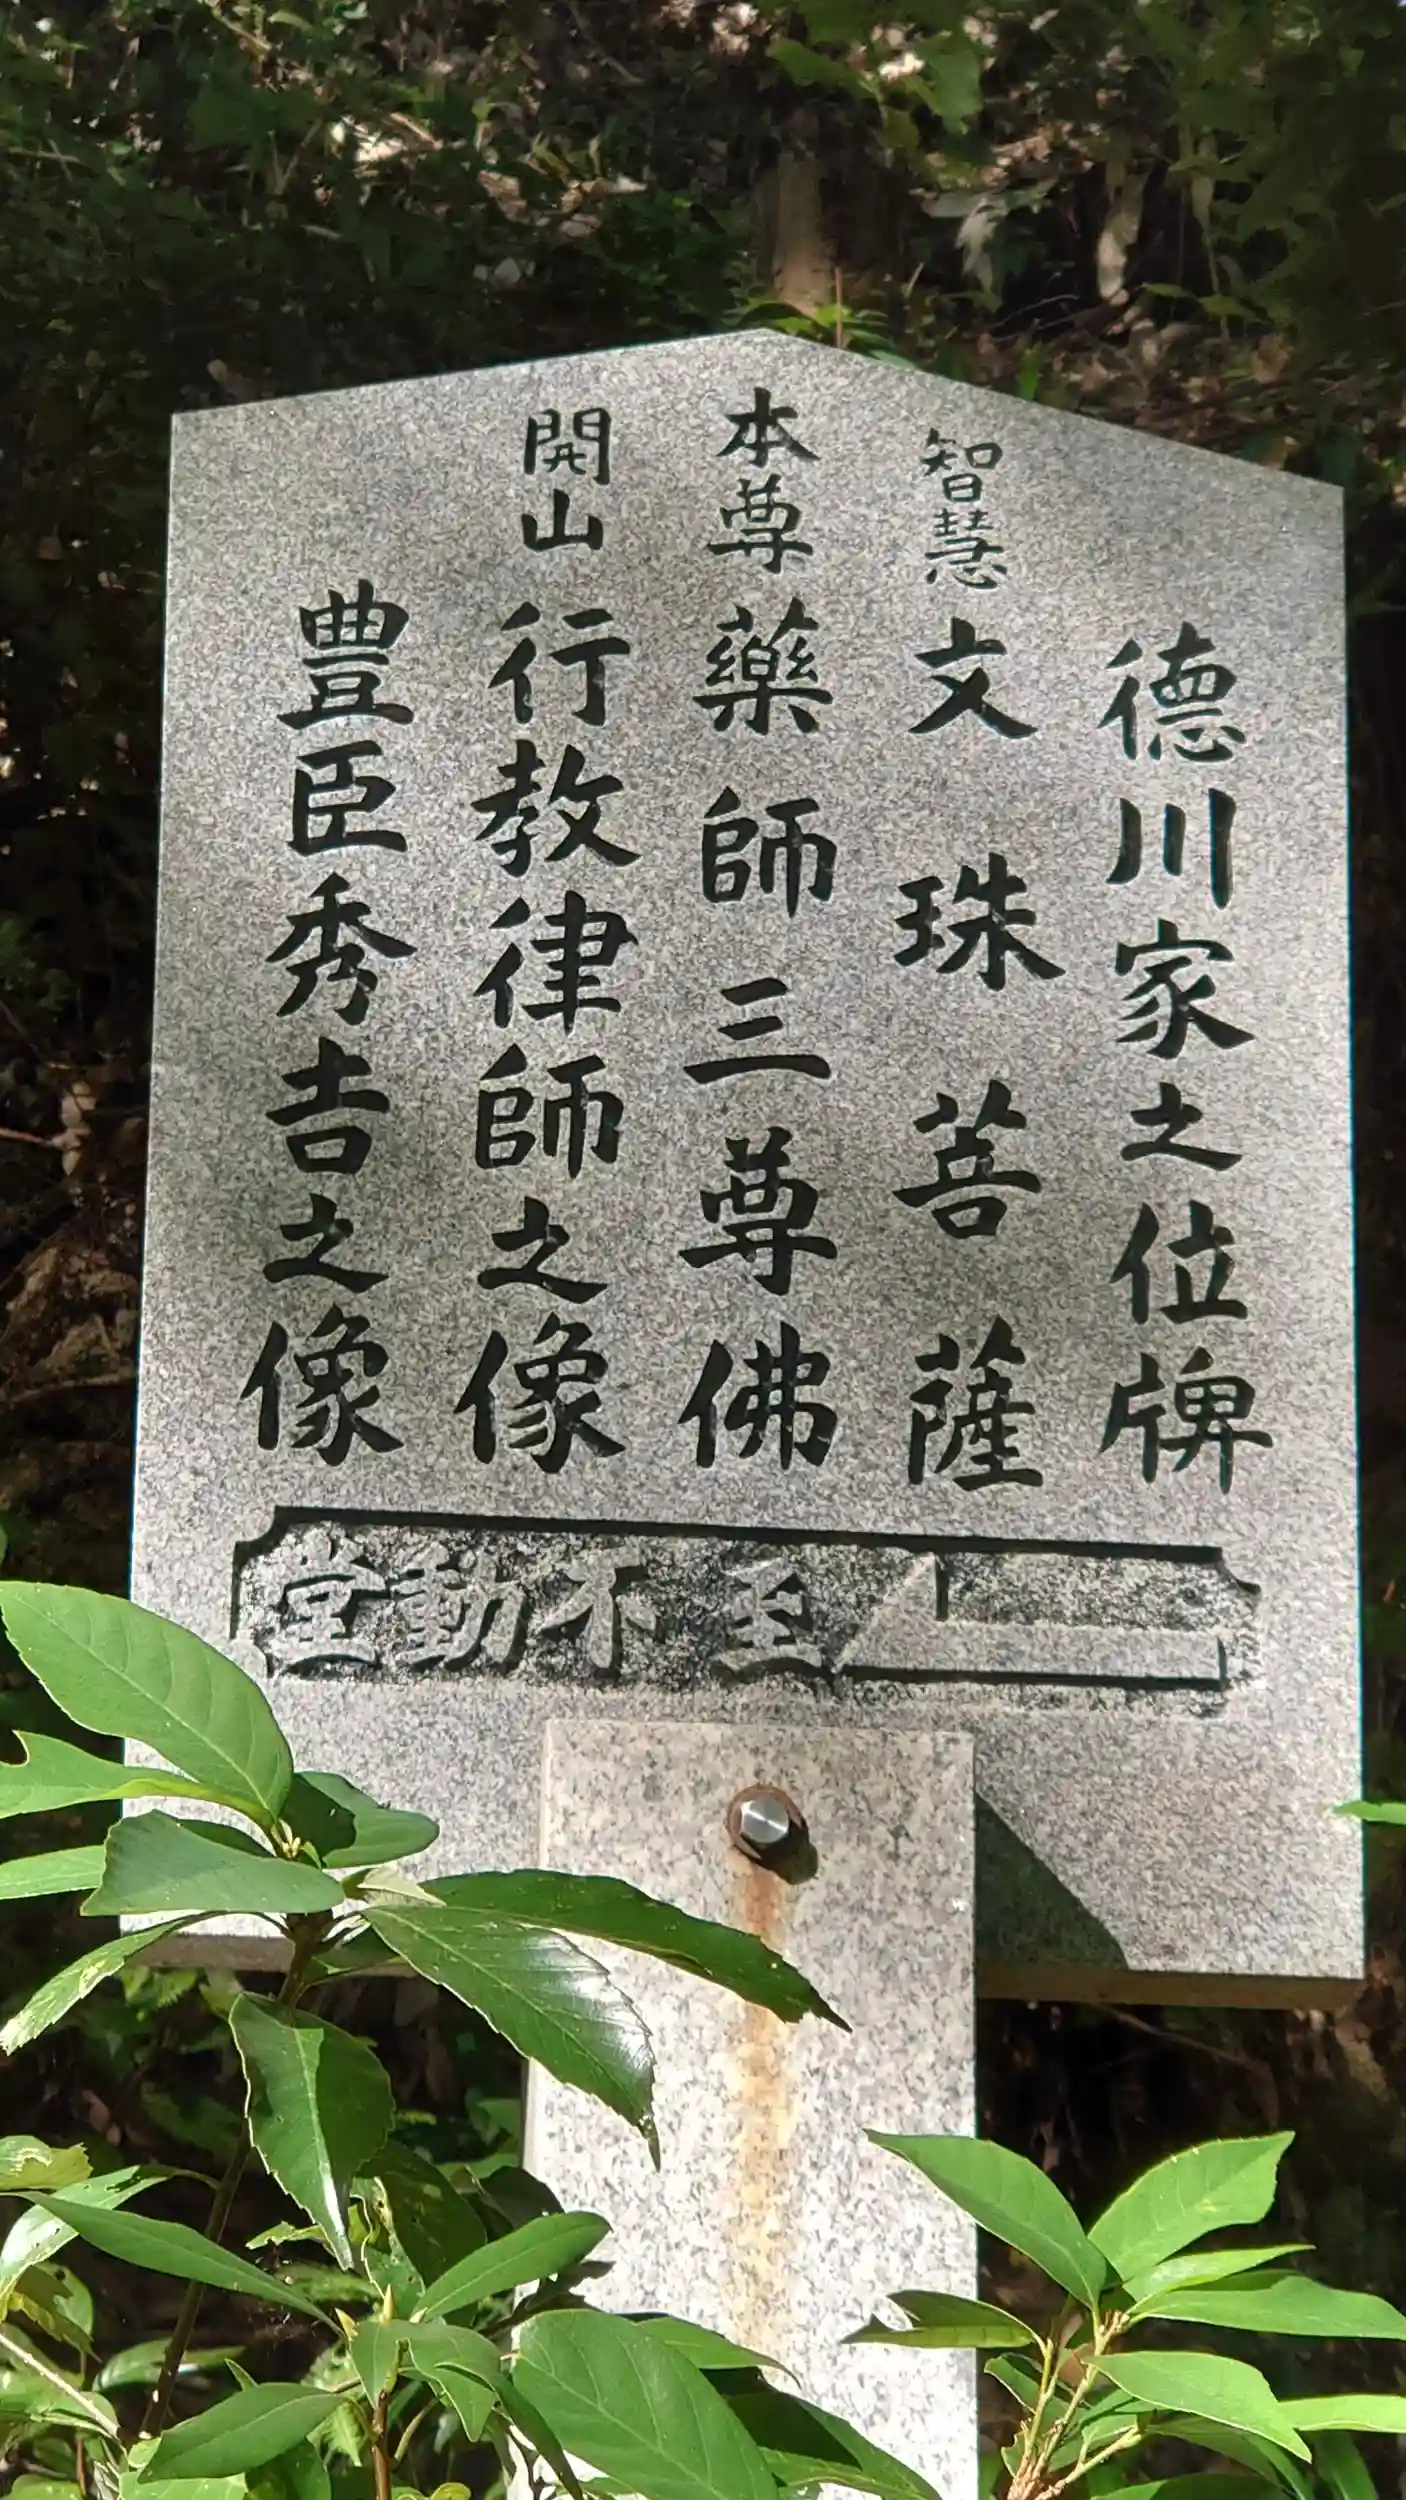 德川家之位牌
智慧 文珠菩薩
本尊 藥師三尊佛
開山 行教律師之像
豊臣秀吉之像
堂動不 至